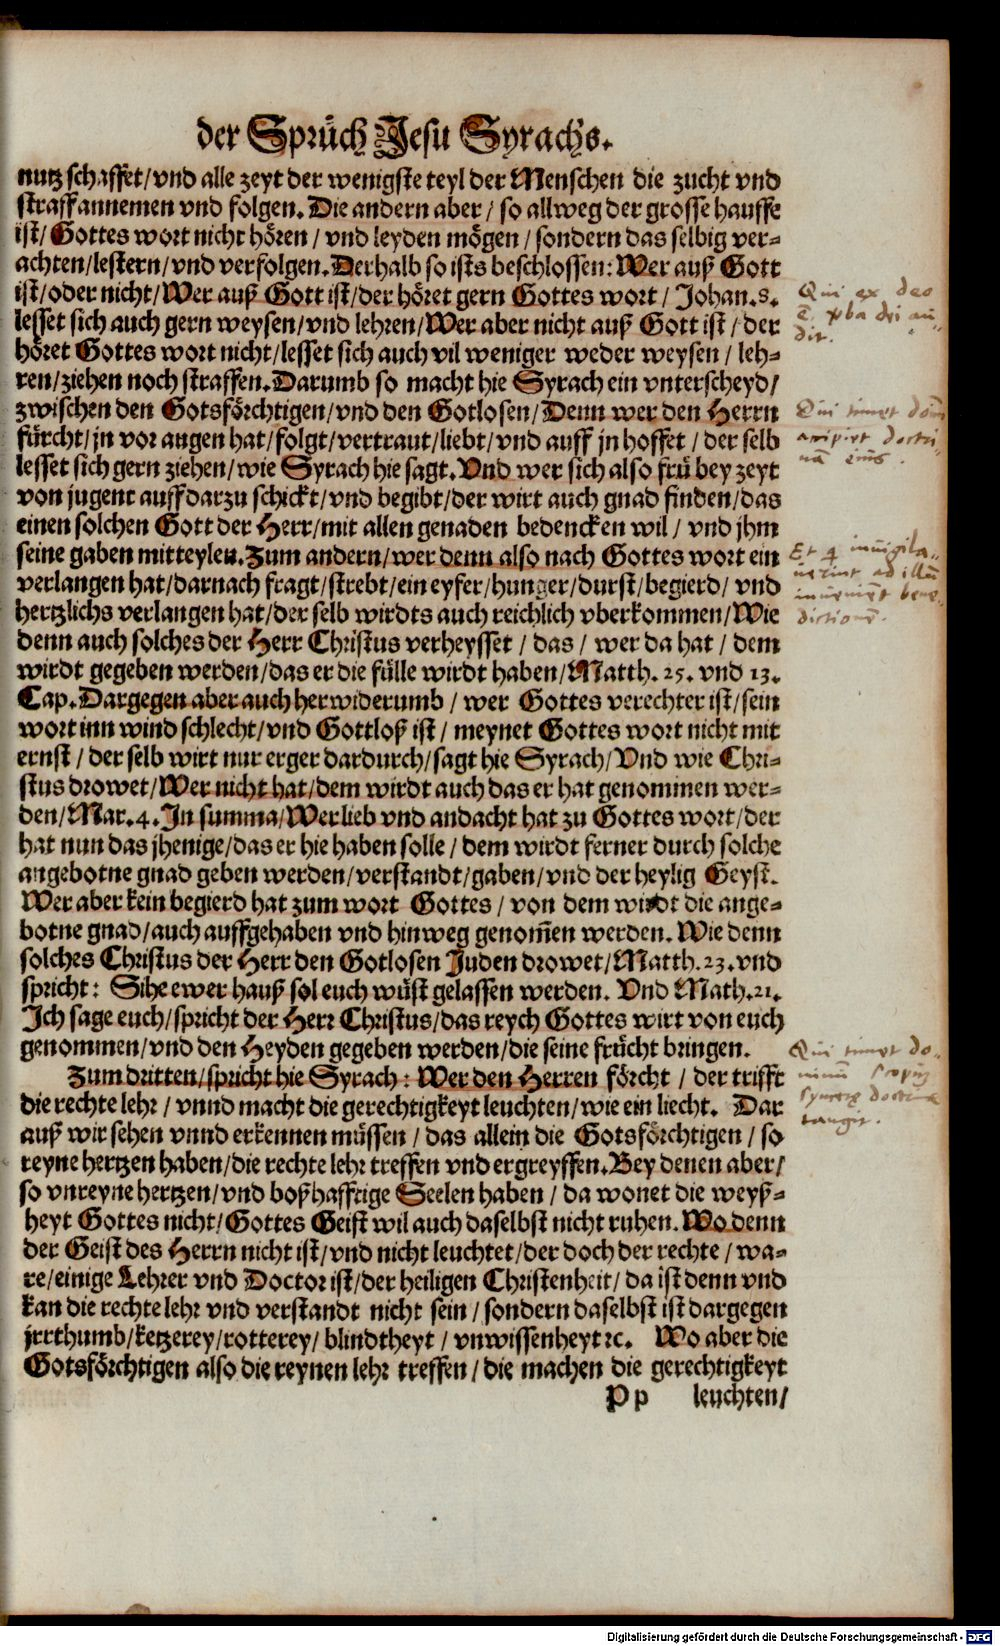 der Sprüch Jesu Syrachs.
nutz schaffet/vnd alle zeyt der wenigste teyl der Menschen die zucht vnd
straff annemen vnd folgen. Die andern aber/ so allweg der grosse hauffe
ist/ Gottes wort nicht hören/ vnd leyden mögen/ sondern das selbig ver=
achten/lestern/vnd verfolgen. Derhalb so ists beschlossen: Wer auß Gott
ist/oder nicht/Wer auß Gott ist/der höret gern Gottes wort/ Johan.8.
lesset sich auch gern weysen/vnd lehren/Wer aber nicht auß Gott ist/ der
höret Gottes wort nicht/lesset sich auch vil weniger weder weysen/ leh=
ren/ziehen noch straffen. Darumb so macht hie Syrach ein vnterscheyd/
zwischen den Gotsförchtigen/vnd den Gotlosen/Denn wer den Herrn
fürcht/jn vor augen hat/folgt/vertraut/liebt/vnd auff jn hoffet/ der selb
lesset sich gern ziehen/wie Syrach hie sagt. Vnd wer sich also frü bey zeyt
von jugent auff darzu schickt/vnd begibt/der wirt auch gnad finden/das
einen solchen Gott der Herr/mit allen genaden bedencken wil/ vnd jhm
seine gaben mitteylen. Zum andern/wer denn also nach Gottes wort ein
verlangen hat/darnach fragt/strebt/ein eyfer/hunger/durst/begierd/ vnd
hertzlichs verlangen hat/der selb wirdts auch reichlich vberkommen/Wie
denn auch solches der Herr Christus verheysset/ das/ wer da hat/ dem
wirdt gegeben werden/das er die fülle wirdt haben/Matth. 25. vnd 13.
Cap. Dargegen aber auch herwiderumb/ wer Gottes verechter ist/sein
wort inn wind schlecht/vnd Gottloß ist/ meynet Gottes wort nicht mit
ernst/ der selb wirt nur erger dardurch/sagt hie Syrach/Vnd wie Chri=
stus drowet/Wer nicht hat/dem wirdt auch das er hat genommen wer=
den/Mar.4. In summa/Wer lieb vnd andacht hat zu Gottes wort/der
hat nun das jhenige/das er hie haben solle/ dem wirdt ferner durch solche
angebotne gnad geben werden/verstandt/gaben/vnd der heylig Geyst.
Wer aber kein begierd hat zum wort Gottes/ von dem wirdt die ange=
botne gnad/auch auffgehaben vnd hinweg genom̃en werden. Wie denn
solches Christus der Herr den Gotlosen Juden drowet/Matth.23.vnd
spricht: Sihe ewer hauß sol euch wüst gelassen werden. Vnd Math.21.
Ich sage euch/spricht der Herr Christus/das reych Gottes wirt von euch
genommen/vnd den Heyden gegeben werden/die seine frücht bringen.
Zum dritten/spricht hie Syrach: Wer den Herren förcht/ der trifft
die rechte lehr/ vnnd macht die gerechtigkeyt leuchten/wie ein liecht. Dar
auß wir sehen vnnd erkennen müssen/ das allein die Gotsförchtigen/ so
reyne hertzen haben/die rechte lehr treffen vnd ergreyffen. Bey denen aber/
so vnreyne hertzen/vnd boßhafftige Seelen haben/ da wonet die weyß=
heyt Gottes nicht/Gottes Geist wil auch daselbst nicht ruhen. Wo denn
der Geist des Herrn nicht ist/vnd nicht leuchtet/der doch der rechte/ wa=
re/einige Lehrer vnd Doctor ist/der heiligen Christenheit/ da ist denn vnd
kan die rechte lehr vnd verstandt nicht sein/ sondern daselbst ist dargegen
jrrthumb/ketzerey/rotterey/ blindtheyt/ vnwissenheyt ꝛc. Wo aber die
Gotsförchtigen also die reynen lehr treffen/ die machen die gerechtigkeyt
Pp leuchten/
Qui ex deo
ē, v̄ba dei au-
dit.
Qui timet dom̄
accipiet doctri-
nā eius.
Et q̄ invigila-
uerint ad illū
inuenient bene-
dictionē.
Qui timet do-
minū scopū
syncerę doctrinę
tangit.
Digitalisierung gefördert durch die Deutsche Forschungsgemeinschaft - DFG